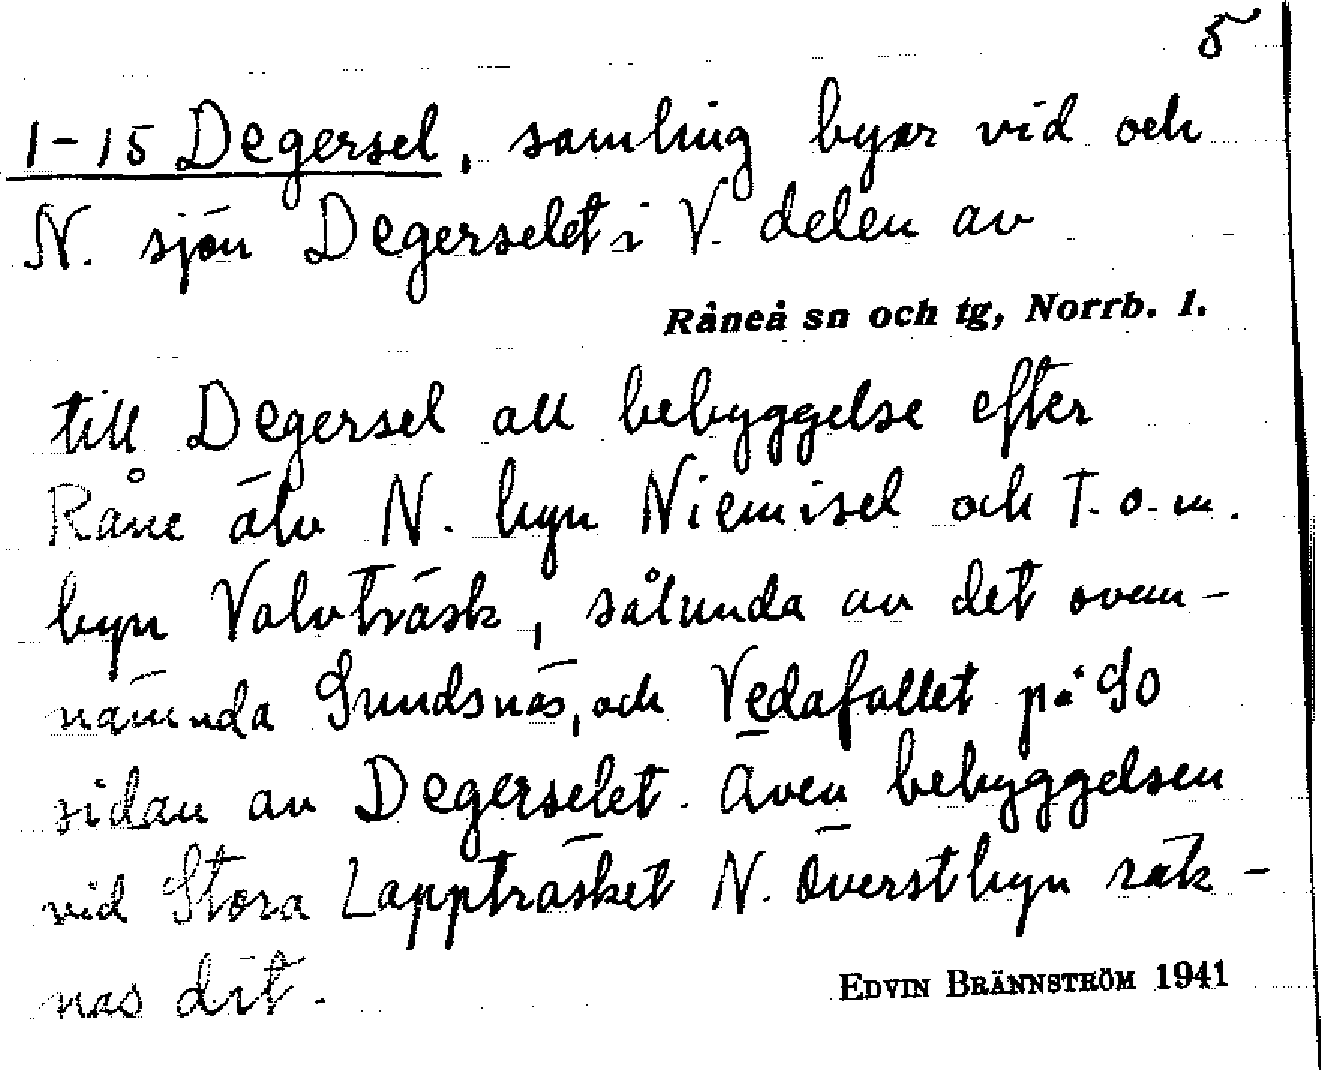 5
1-15 Degersel, samling byar vid och
N. sjön Degerselet i V. delen av
Råneå sn och tg, Norrb. l.
till Degersel all bebyggelse efter
Råne älv N. byn Niemisel och t.o.m.
byn Valvträsk, sålunda av det ovan-
nämnda Sundsnäs, och Vedafallet på SO
sidan av Degerselet. Även bebyggelsen
vid Stora Lappträsket N. Överstbyn räk-
nas dit.
EDVIN BRÄNNSTRÖM 1941